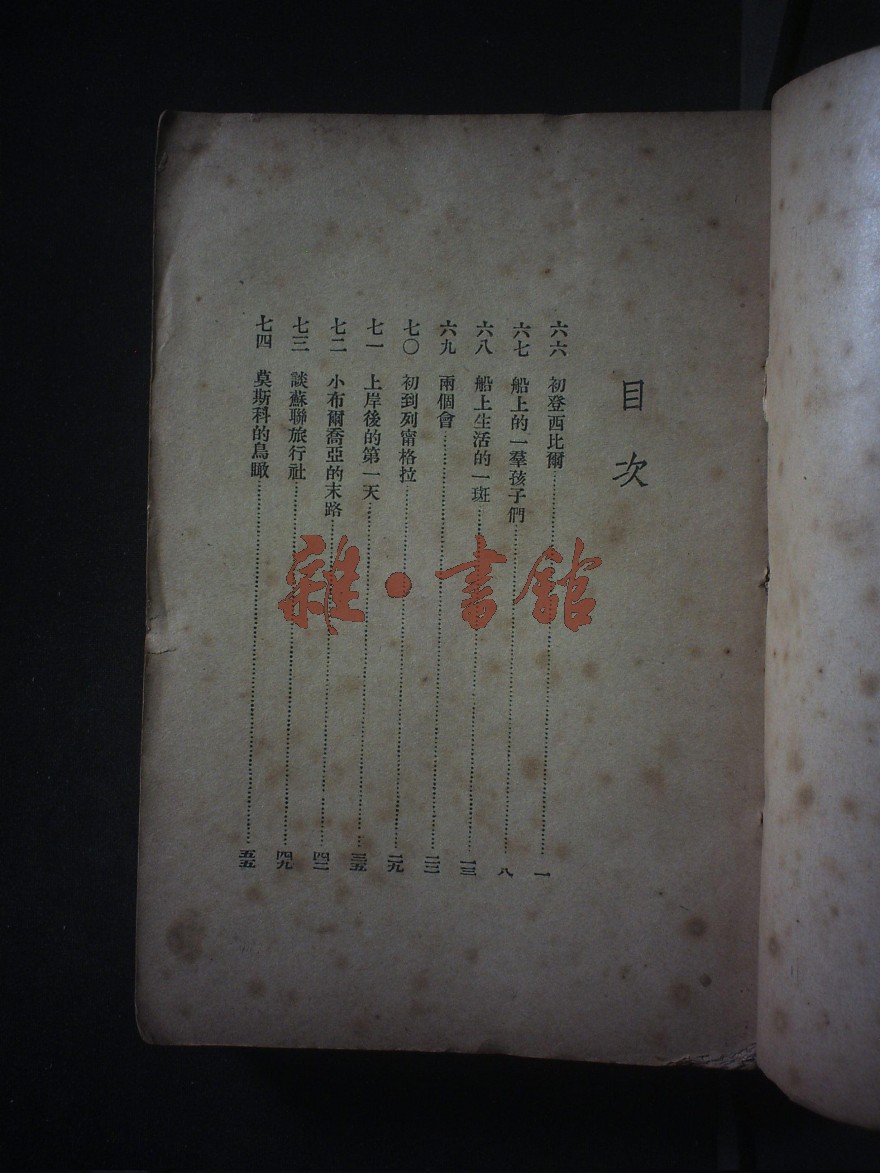 目次
六六 初登西比爾……一
六七 船上的一羣孩子們……八
六八 船上生活的一斑……一三
六九 兩個會……二二
七〇 初到列甯格拉……二九
七一 上岸後的第一天……三五
七二 小布爾喬亞的末路……四二
七三 談蘇聯旅行社……四九
七四 莫斯科的鳥瞰……五五
雜·書館